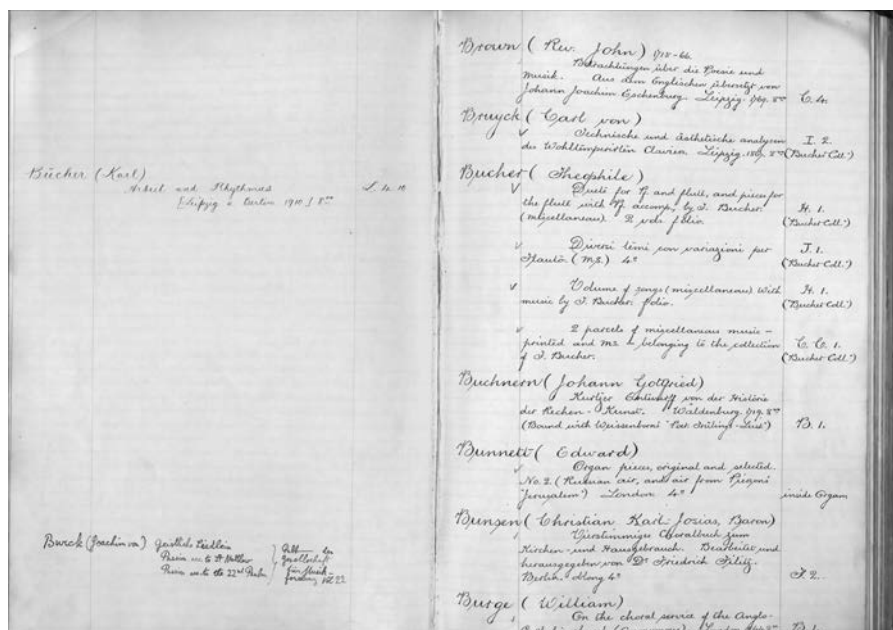 Bücher (Karl)
Arbeit und Rhythmus L. 4. 10
[Leipzig u. Berlin 1910] 8vo
Burck (Joachim von) Geistliche
22
Brown (Rev. John) 1715-66.
Betrachtungen über die Poesie und
musik. Aus dem Englischen übersetzt von
Johann Joachim Eschenburg. Leipzig. 1769. 8vo C. 4.
Bruyck (Carl von)
Technische und ästhetische analysen I. 2.
des Wohltemperirten Claviers. Leipzig. 8vo ("Bucher Coll.")
Bucher (Theophile)
Duets for and flute, and pieces for
the flute with accomp. by T. Bucher. H. 1.
(miscellaneous). 2 vols. folio. ("Bucher Coll.")
Diversi temi con variazioni per J. 1.
flauto. (MS.) 4o ("Bucher Coll.")
Volume of songs (miscellaneous) with H. 1.
music by T. Bucher. folio. ("Bucher Coll.")
2 parcels of miscellaneous music -
printed and MS - belonging to the collection C. C. 1.
of T. Bucher. ("Bucher Coll.")
Buchnern (Johann Gotfried)
Kurtzer Entwurff von der Historie
der Rechen-Kunst. Waldenburg. 1719. 8vo
(Bound with Weissenborn's B. 1.
Bunnett (Edward)
Organ pieces, original and selected.
No. 2 (Russian air, and air from Pierson's
"Jerusalem") London. 4o inside Organ
Bunsen (Christian Karl Josias, Baron)
Vierstimmiges Choralbuch zum
Kirchen- und Hausgebrauch. Bearbeitet und
herausgegeben von Dr Friedrich Filitz.
Berlin. oblong 4o J. 2.
Burge (William)
On the choral service of the Anglo-